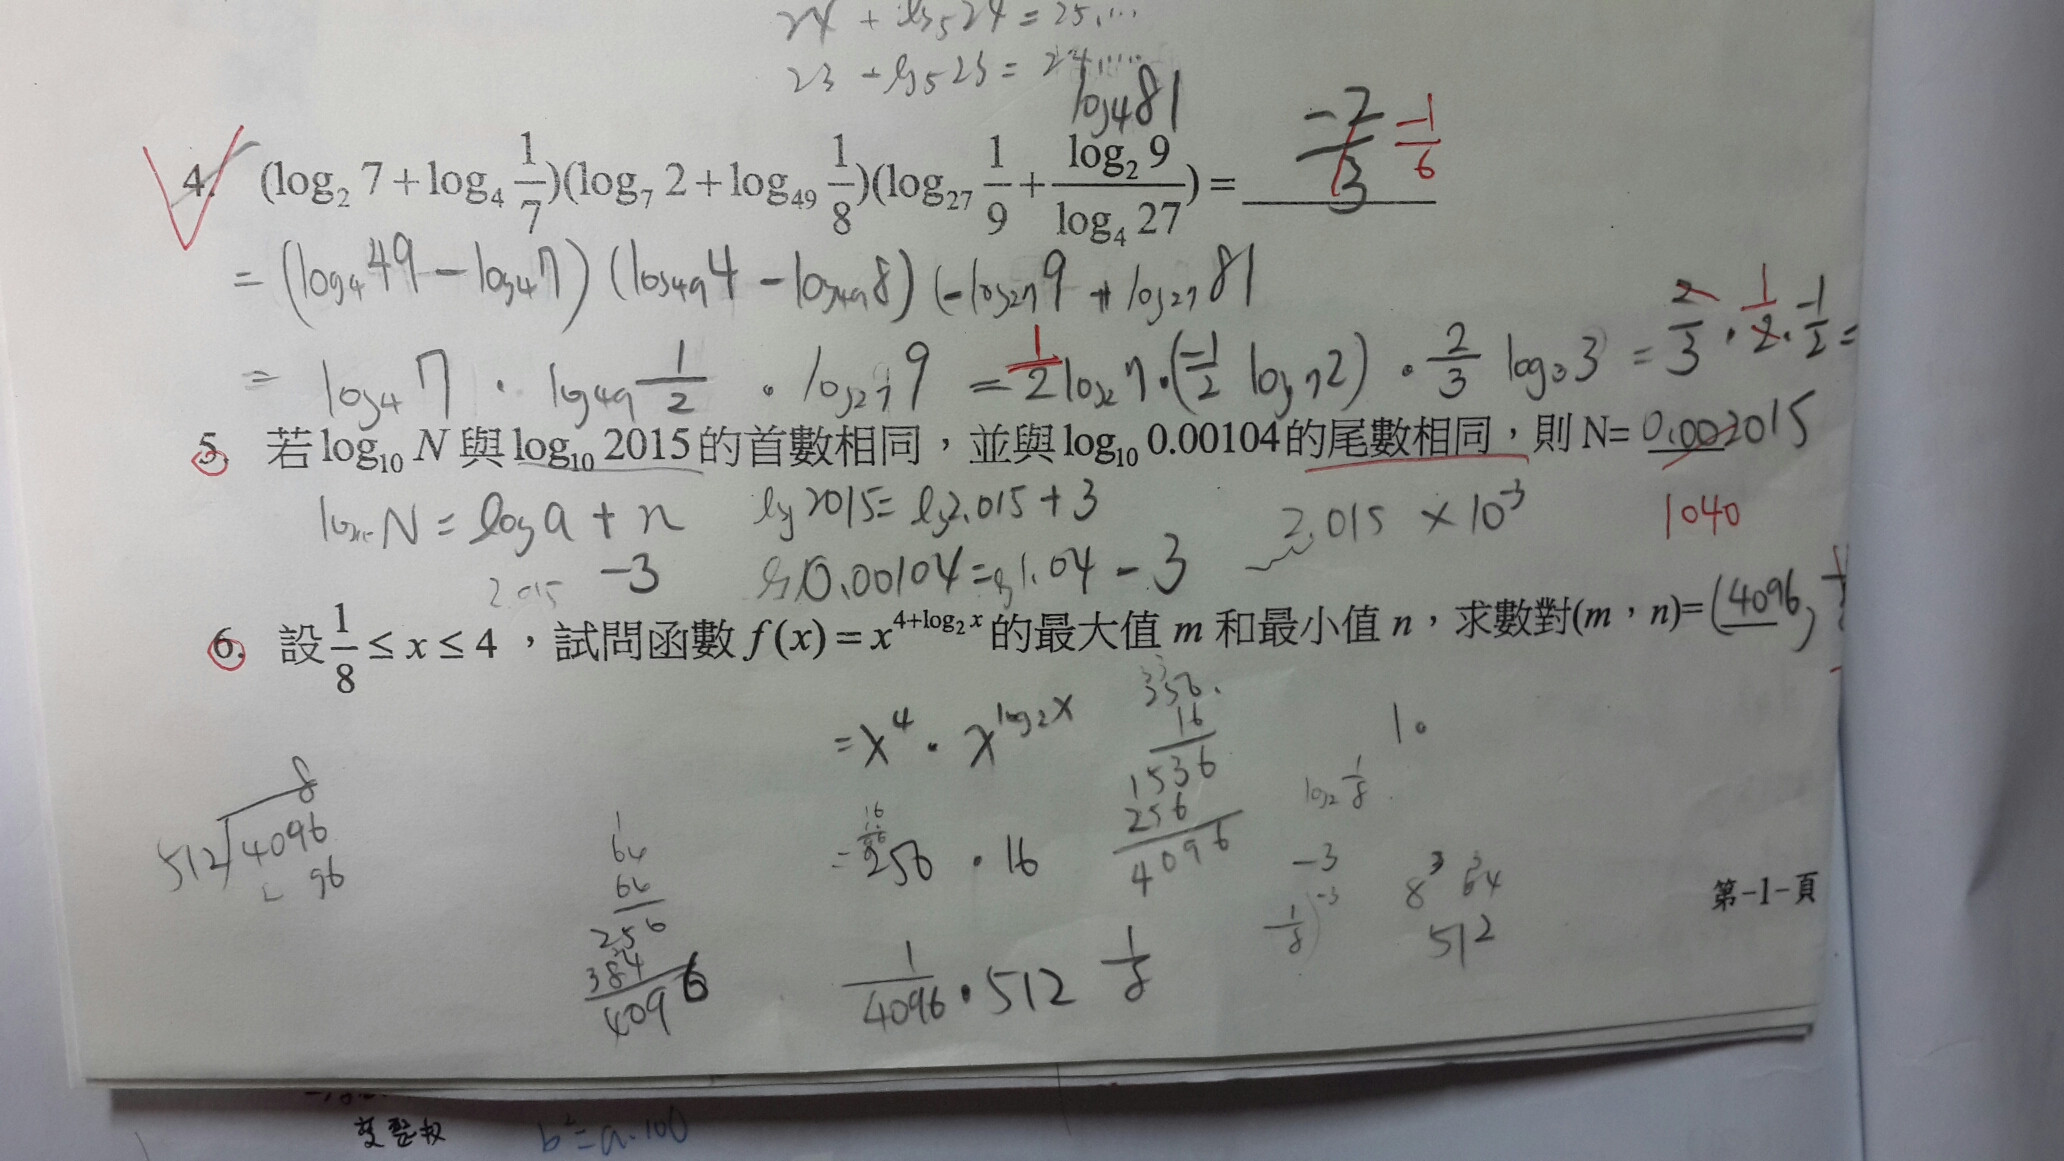 24 + log₅24 = 25....
23 + log₅23 = 24.....
log₄81
4. (log₂ 7 + log₄ 1/7)(log₇ 2 + log₄₉ 1/8)(log₂₇ 1/9 + log₂ 9/log₄ 27) = -2/3 -1/6
= (log₄49 - log₄7) (log₄₉4 - log₄₉8) (-log₂₇9 + log₂₇81
= log₄7 · log₄₉ 1/2 · log₂₇9 = 1/2 log₂7·(-1/2 log₇2) · 2/3 log₃3 = 2/3 · 1/2 · -1/2 =
5. 若 log₁₀ N 與 log₁₀ 2015 的首數相同,並與 log₁₀ 0.00104 的尾數相同,則 N= 0.002015
1040
log N = log a + n log 2015 = log 2.015 + 3 2.015 × 10⁻³
2.015 -3 log 0.00104 = log 1.04 - 3
6. 設 1/8 ≤ x ≤ 4 ,試問函數 f(x) = x^(4+log₂ x) 的最大值 m 和最小值 n,求數對(m,n)= (4096,
= x⁴ · x^(log₂x)
= 256 · 16
1/4096 · 512 1/8
8
512 4096
96
64
64
256
384
4096
356
16
1536
256
4096
1.
log₂ 1/8
-3
1/8)⁻³
8³ 64
512
第-1-頁
b²=a·100